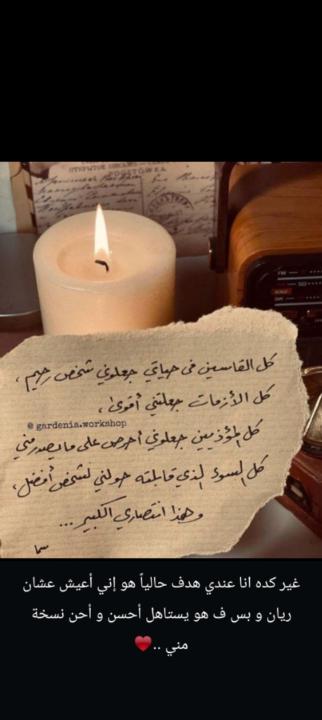 كل القاسيين في حياتي جعلوني شخص رحيم،
كل الأزمات جعلتني أقوى،
@gardenia.workshop
كل المؤذيين جعلوني أحرص على ما يصدر مني
كل السوء الذي قابلته حولني لشخص أفضل،
وهذا انتصاري الكبير...
سما
غير كده انا عندي هدف حالياً هو إني أعيش عشان
ريان و بس ف هو يستاهل أحسن و أحن نسخة
مني ..♥️